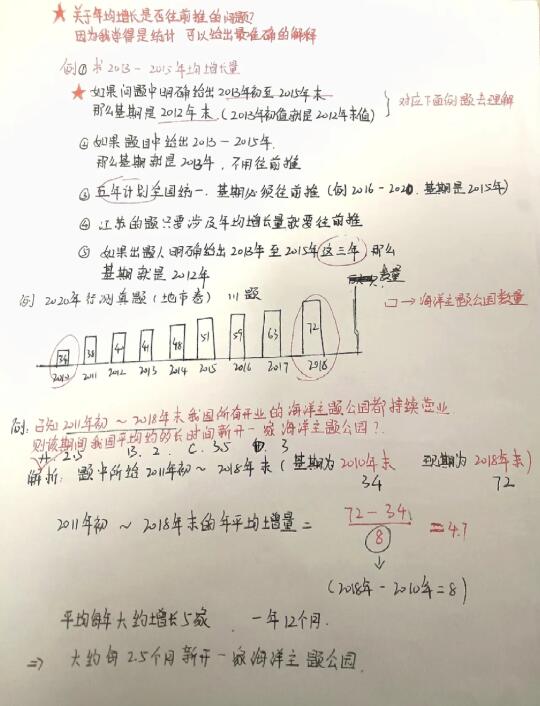 ★ 关于年均增长是否往前推的问题?
因为我学得是统计 可以给出最准确的解释
例① 求2013-2015年均增长量
★ 如果问题中明确给出2013年初至2015年末
那么基期是2012年末 (2013年初值就是2012年末值)
对应下面例题去理解
② 如果题目中给出2013-2015年.
那么基期就是2013年, 不用往前推
③ 五年计划全国统一. 基期必须往前推 (例2016-2020. 基期是2015年)
④ 江苏的题只要涉及年均增长量就要往前推
⑤ 如果出题人明确给出2013年至2015年这三年 那么
基期就是2012年
例 2020年行测真题 (地市卷) 111题
数量
□→海洋主题公园数量
34 38 40 41 48 51 59 63 72
2010 2011 2012 2013 2014 2015 2016 2017 2018
例: 已知2011年初~2018年末我国所有开业的海洋主题公园都持续营业
则该期间我国平均约多长时间新开一家海洋主题公园?
A. 2.5 B. 2 C. 3.5 D. 3
解析: 题中所给2011年初~2018年末 (基期为2010年末 现期为2018年末)
34 72
2011年初~2018年末的年平均增量 = 72-34 / 8 = 4.7
(2018年-2010年=8)
平均每年大约增长5家 一年12个月.
⇒ 大约每2.5个月新开一家海洋主题公园.